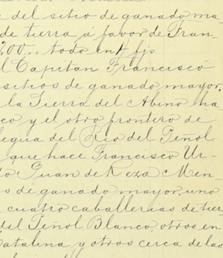 e del sitio de ganado ma
de tierra a favor de Fran
200... todo ent fjs
el Capitan Francisco
sitios de ganado mayor,
la Tierra del Abino ha
co y el otro frontero de
legua del Rio del Peñol
que hace Francisco Ur
o Juan de Meza Men
s de ganado mayor, uno
cuatro caballerias de tier
del Peñol Blanco, otros en
atalina y otros cerca de las